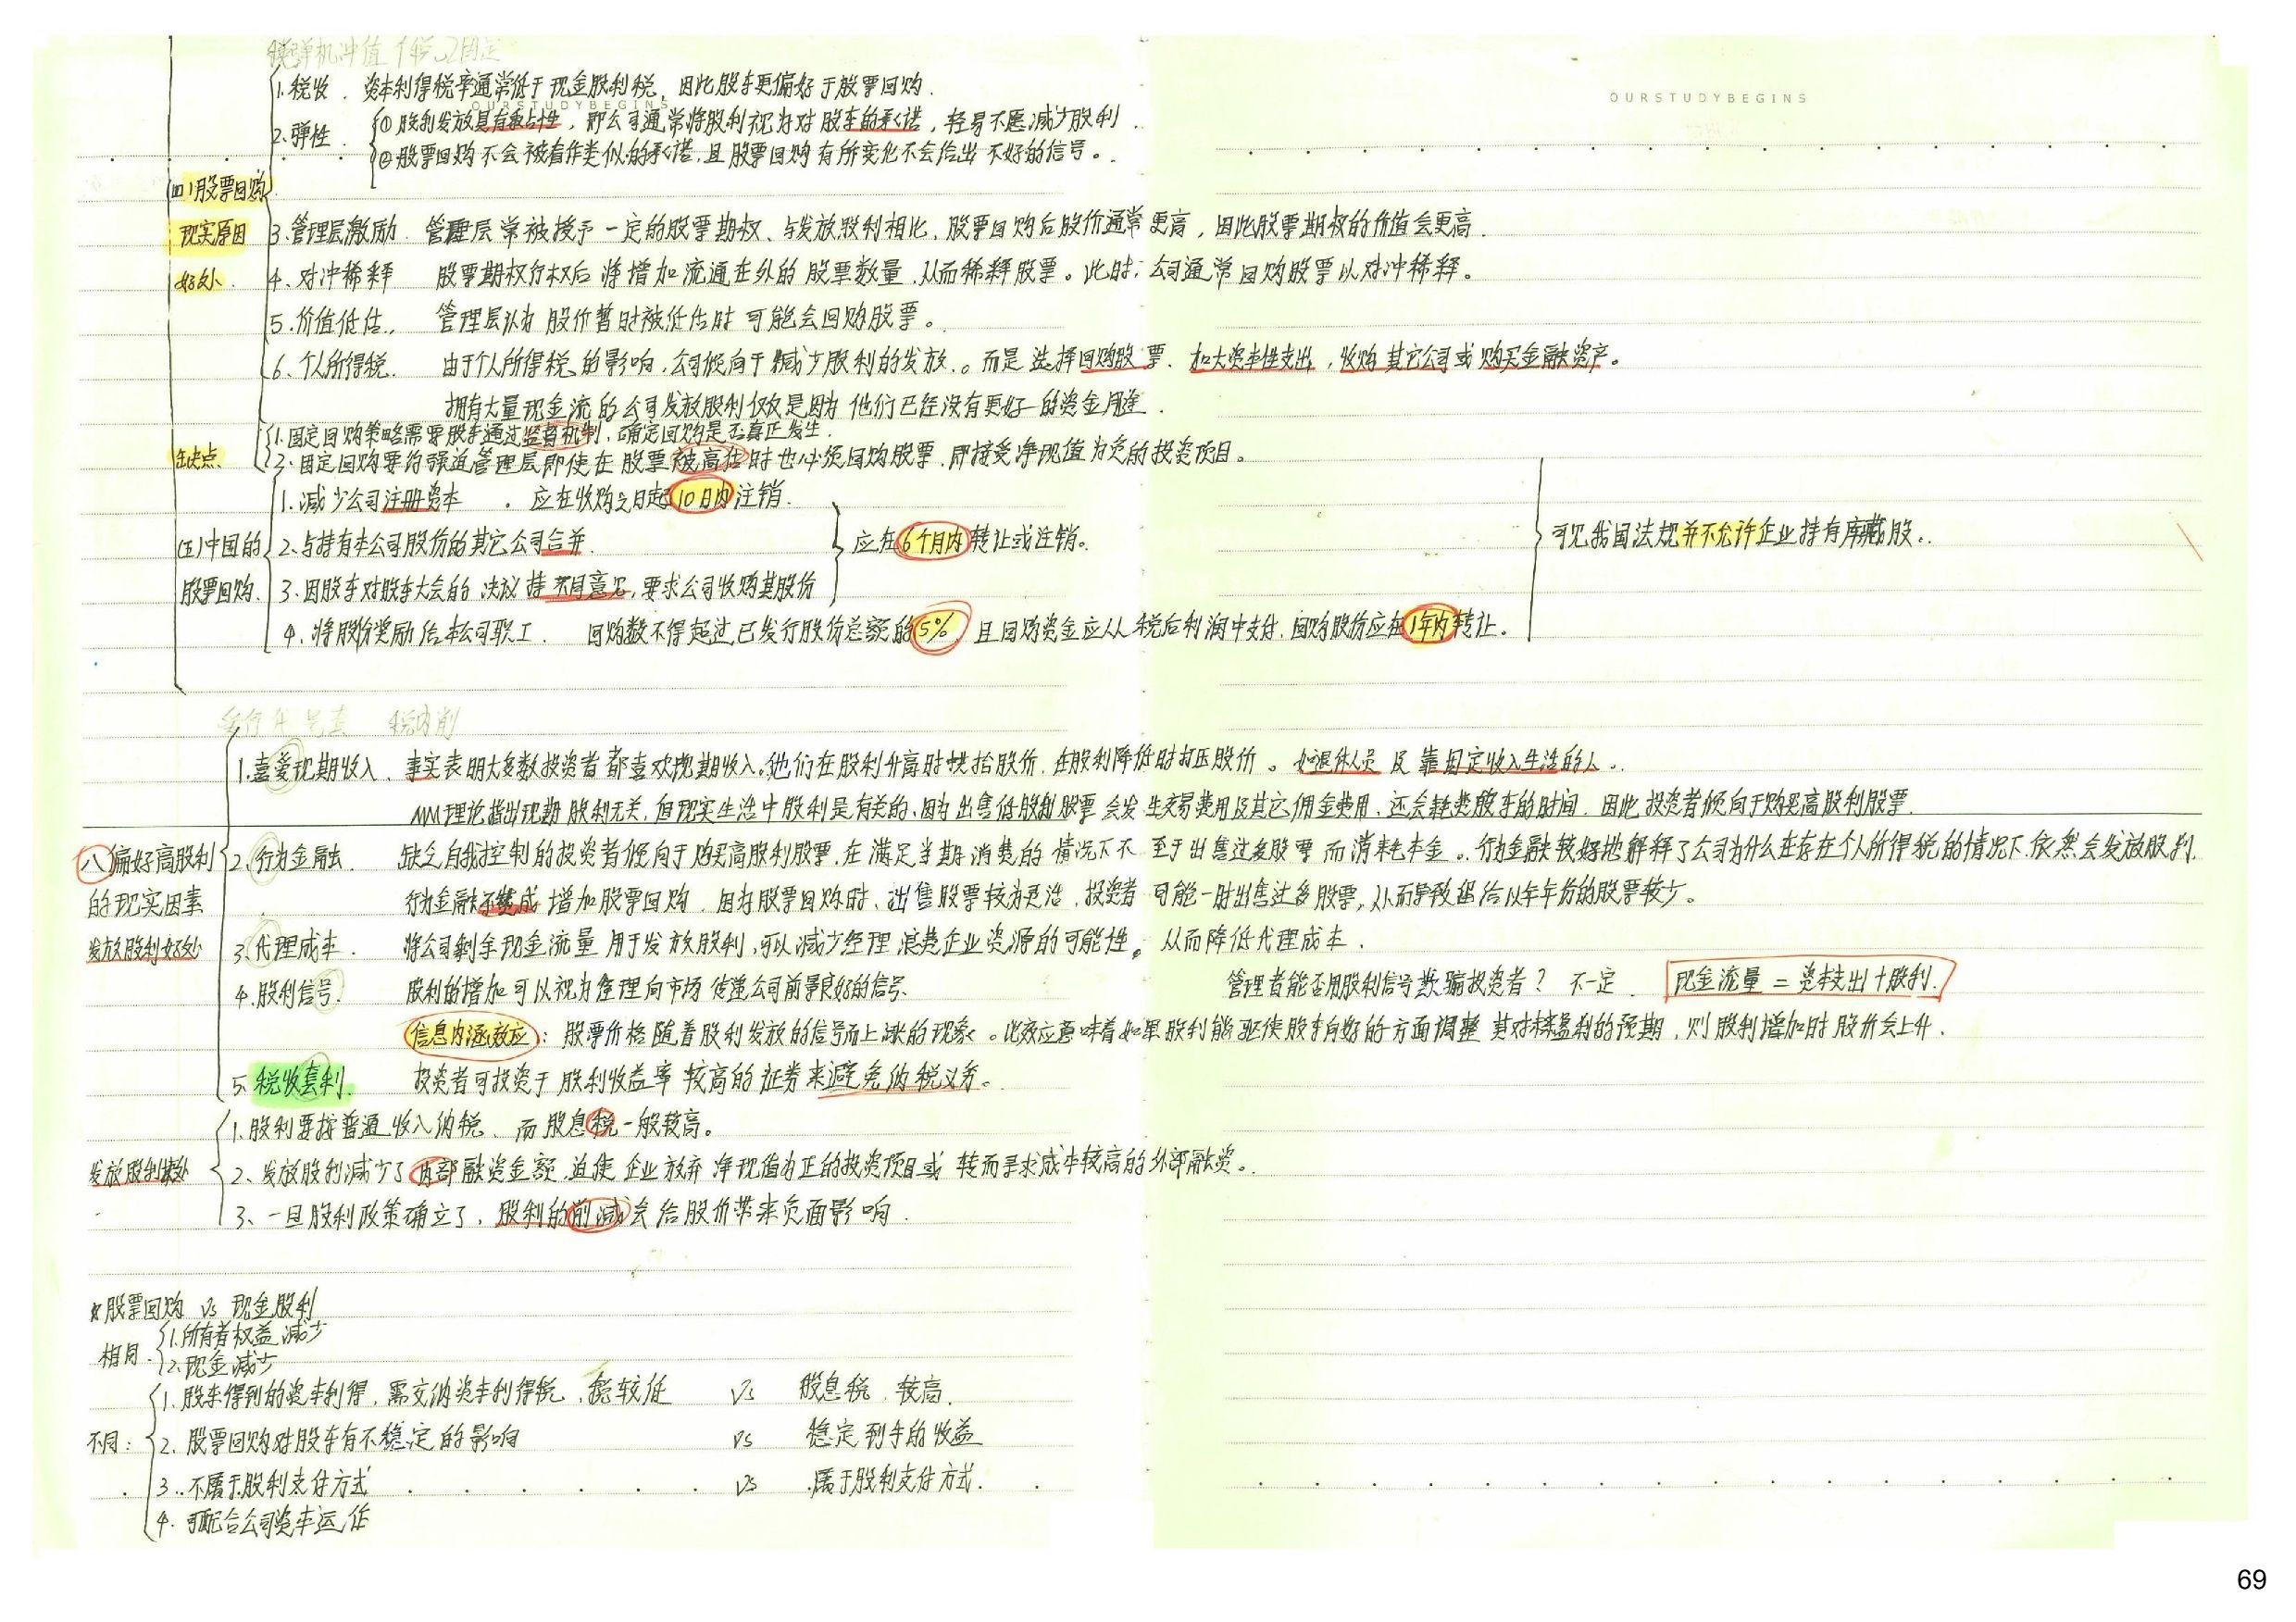 税弹机冲值 个税 固定
1.税收. 资本利得税率通常低于现金股利税, 因此股东更偏好于股票回购.
OURSTUDYBEGINS
OURSTUDYBEGINS
2.弹性. ①股利发放具有黏占性, 即公司通常将股利视为对股东的承诺, 轻易不愿减少股利.
②股票回购不会被看作类似的承诺, 且股票回购有所变化不会给出不好的信号。
(四)股票回购
现实原因
3.管理层激励. 管理层常被授予一定的股票期权、与发放股利相比, 股票回购后股价通常更高, 因此股票期权的价值会更高.
好处.
4.对冲稀释 股票期权行权后将增加流通在外的股票数量, 从而稀释股票。此时, 公司通常回购股票以对冲稀释。
5.价值低估. 管理层认为股价暂时被低估时可能会回购股票。
6、个人所得税. 由于个人所得税的影响, 公司倾向于减少股利的发放。而是选择回购股票、加大资本性支出, 收购其它公司或购买金融资产。
拥有大量现金流的公司发放股利仅仅是因为他们已经没有更好的资金用途.
缺点.
1.固定回购策略需要股东通过监督机制, 确定回购是否真正发生.
2.固定回购要约强迫管理层即使在股票被高估时也必须回购股票, 即接受净现值为负的投资项目。
(五)中国的
股票回购.
1.减少公司注册资本. 应在收购之日起10日内注销.
2.与持有本公司股份的其它公司合并.
应在6个月内转让或注销。
可见我国法规并不允许企业持有库藏股.
3.因股东对股东大会的决议持不同意见, 要求公司收购其股份
4.将股份奖励给本公司职工. 回购数不得超过已发行股份总额的5%, 且回购资金应从税后利润中支付, 回购股份应在1年内转让.
行 代 号 套 税内削
1.喜爱现期收入. 事实表明大多数投资者都喜欢现期收入。他们在股利升高时哄抬股价, 在股利降低时打压股价。如退休人员及靠固定收入生活的人。
MM理论指出现期股利无关, 但现实生活中股利是有关的, 因为出售低股利股票会发生交易费用及其它佣金费用, 还会耗费股东的时间. 因此投资者倾向于购买高股利股票.
八偏好高股利
的现实因素
发放股利好处
2.行为金融. 缺乏自我控制的投资者倾向于购买高股利股票, 在满足当期消费的情况下不至于出售过多股票而消耗本金。行为金融较好地解释了公司为什么在存在个人所得税的情况下依然会发放股利.
行为金融不赞成增加股票回购. 因为股票回购时, 出售股票较为灵活, 投资者可能一时出售过多股票, 从而导致留给以年年份的股票较少。
3.代理成本. 将公司剩余现金流量用于发放股利, 可以减少经理浪费企业资源的可能性。从而降低代理成本.
4.股利信号. 股利的增加可以视为管理向市场传递公司前景良好的信号.
管理者能否用股利信号欺骗投资者? 不一定. 现金流量=资本支出+股利.
信息内涵效应: 股票价格随着股利发放的信号而上涨的现象。此效应意味着如果股利能驱使股东向好的方面调整其对未来盈利的预期, 则股利增加时股价会上升.
5.税收套利. 投资者可投资于股利收益率较高的证券来避免纳税义务。
发放股利坏处
1.股利要按普通收入纳税、而股息税一般较高。
2.发放股利减少了内部融资金额, 迫使企业放弃净现值为正的投资项目或转而寻求成本较高的外部融资。
3、一旦股利政策确立了, 股利的削减会给股价带来负面影响.
*股票回购 vs 现金股利
相同.
1.所有者权益减少
2.现金减少
不同:
1.股东得到的资本利得, 需交纳资本利得税, 税较低 vs 股息税, 较高.
2.股票回购对股东有不稳定的影响 vs 稳定到手的收益
3.不属于股利支付方式 vs 属于股利支付方式.
4.可配合公司资本运作
69